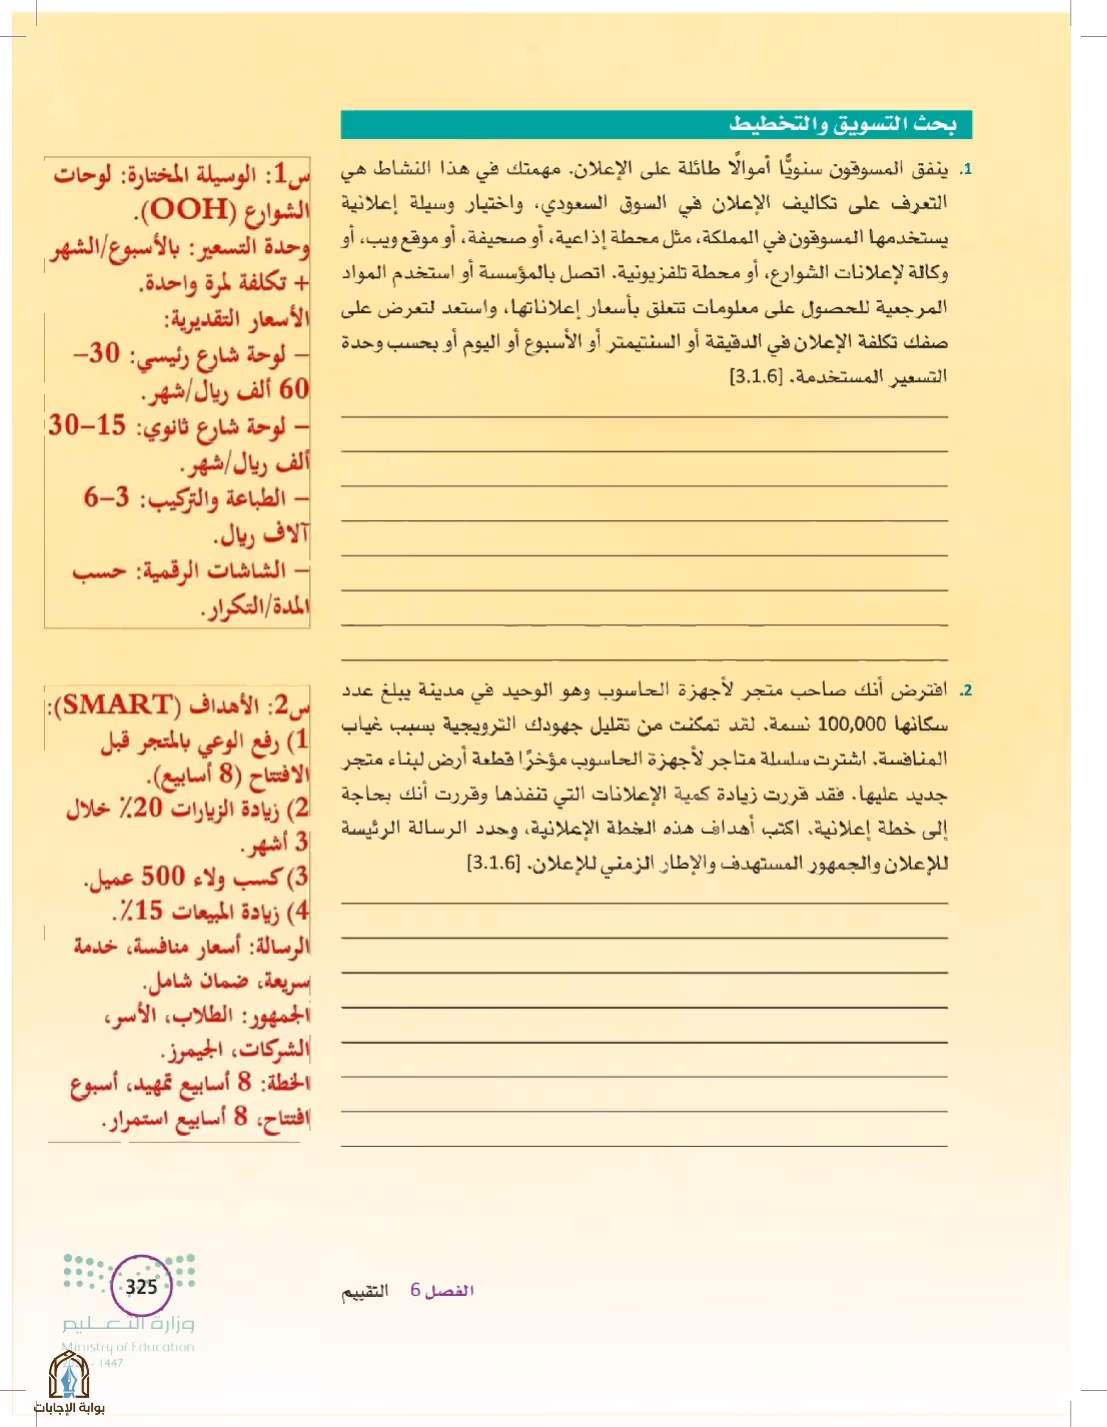 بحث التسويق والتخطيط
1. ينفق المسوقون سنويًّا أموالًا طائلة على الإعلان. مهمتك في هذا النشاط هي
التعرف على تكاليف الإعلان في السوق السعودي، واختيار وسيلة إعلانية
يستخدمها المسوقون في المملكة، مثل محطة إذاعية، أو صحيفة، أو موقع ويب، أو
وكالة لإعلانات الشوارع، أو محطة تلفزيونية. اتصل بالمؤسسة أو استخدم المواد
المرجعية للحصول على معلومات تتعلق بأسعار إعلاناتها، واستعد لتعرض على
صفك تكلفة الإعلان في الدقيقة أو السنتيمتر أو الأسبوع أو اليوم أو بحسب وحدة
التسعير المستخدمة. [3.1.6]
س1: الوسيلة المختارة: لوحات
الشوارع (OOH).
وحدة التسعير: بالأسبوع/الشهر
+ تكلفة لمرة واحدة.
الأسعار التقديرية:
– لوحة شارع رئيسي: 30–
60 ألف ريال/شهر.
– لوحة شارع ثانوي: 15–30
ألف ريال/شهر.
– الطباعة والتركيب: 3–6
آلاف ريال.
– الشاشات الرقمية: حسب
المدة/التكرار.
2. افترض أنك صاحب متجر لأجهزة الحاسوب وهو الوحيد في مدينة يبلغ عدد
سكانها 100,000 نسمة. لقد تمكنت من تقليل جهودك الترويجية بسبب غياب
المنافسة. اشترت سلسلة متاجر لأجهزة الحاسوب مؤخرًا قطعة أرض لبناء متجر
جديد عليها. فقد قررت زيادة كمية الإعلانات التي تنفذها وقررت أنك بحاجة
إلى خطة إعلانية. اكتب أهداف هذه الخطة الإعلانية، وحدد الرسالة الرئيسة
للإعلان والجمهور المستهدف والإطار الزمني للإعلان. [3.1.6]
س2: الأهداف (SMART):
1) رفع الوعي بالمتجر قبل
الافتتاح (8 أسابيع).
2) زيادة الزيارات 20٪ خلال
3 أشهر.
3) كسب ولاء 500 عميل.
4) زيادة المبيعات 15٪.
الرسالة: أسعار منافسة، خدمة
سريعة، ضمان شامل.
الجمهور: الطلاب، الأسر،
الشركات، الجيمرز.
الخطة: 8 أسابيع تمهيد، أسبوع
افتتاح، 8 أسابيع استمرار.
الفصل 6 التقييم
325
وزارة التعليم
Ministry of Education
- 1447
بوابة الإجابات